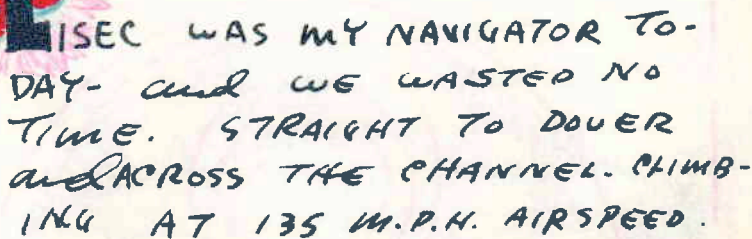 LISEC WAS MY NAVIGATOR TO-
DAY- and WE WASTED NO
TIME. STRAIGHT TO DOVER
and ACROSS THE CHANNEL. CLIMB-
ING AT 135 M.P.H. AIRSPEED.